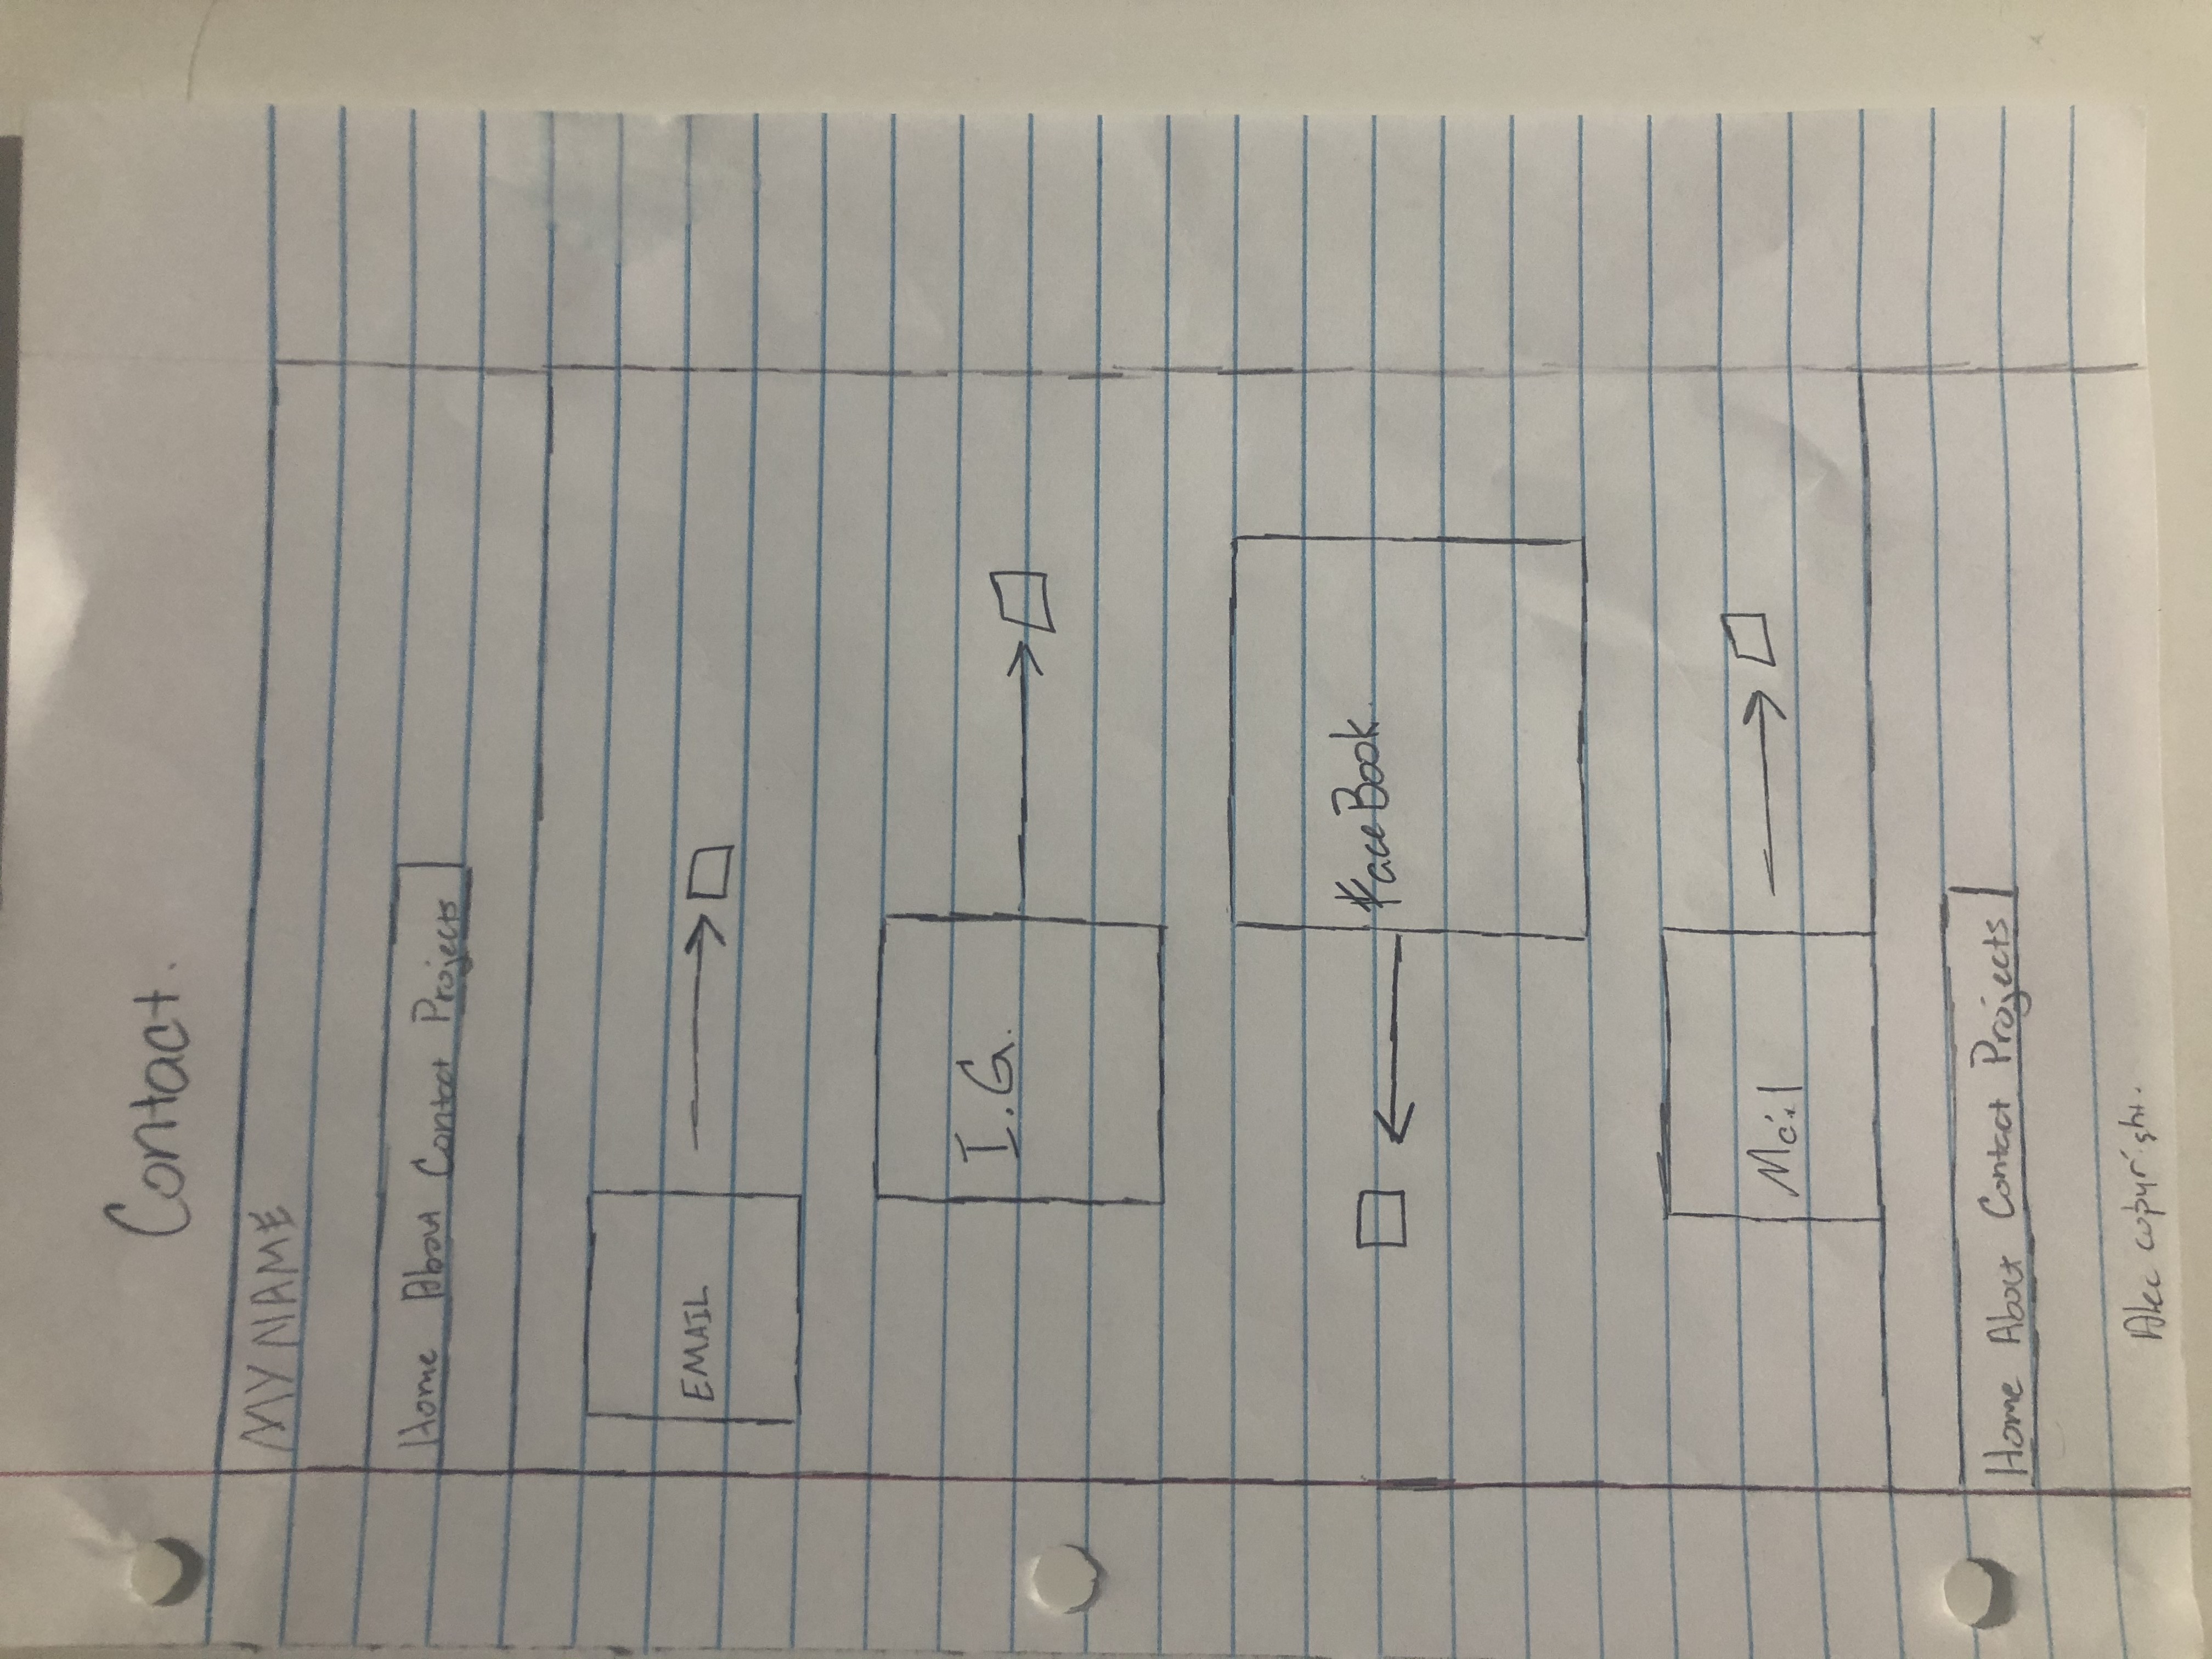 Contact.
MY NAME
Home About Contact Projects
EMAIL
I.G.
FaceBook.
Mail
Home About Contact Projects
Alec copyright.